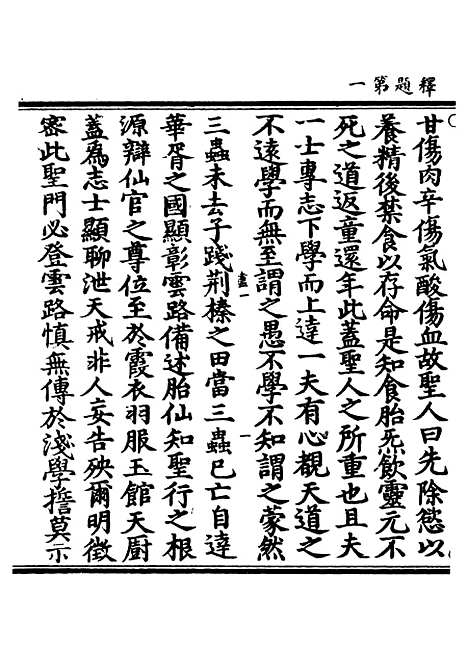 釋題第一
甘傷肉辛傷氣酸傷血故聖人曰先除慾以
養精後禁食以存命是知食胎炁飲靈元不
死之道返童還年此蓋聖人之所重也且夫
一士專志下學而上達一夫有心覩天道之
不遠學而無至謂之愚不學不知謂之蒙然
盡一
一
三蟲未去子踐荆榛之田當三蟲已亡自達
華胥之國顯彰雲路備述胎仙知聖行之根
源辯仙官之尊位至於霞衣羽服玉館天厨
蓋為志士顯聊泄天戒非人妄告殃爾明徵
密此聖門必登雲路慎無傳於淺學擔莫示